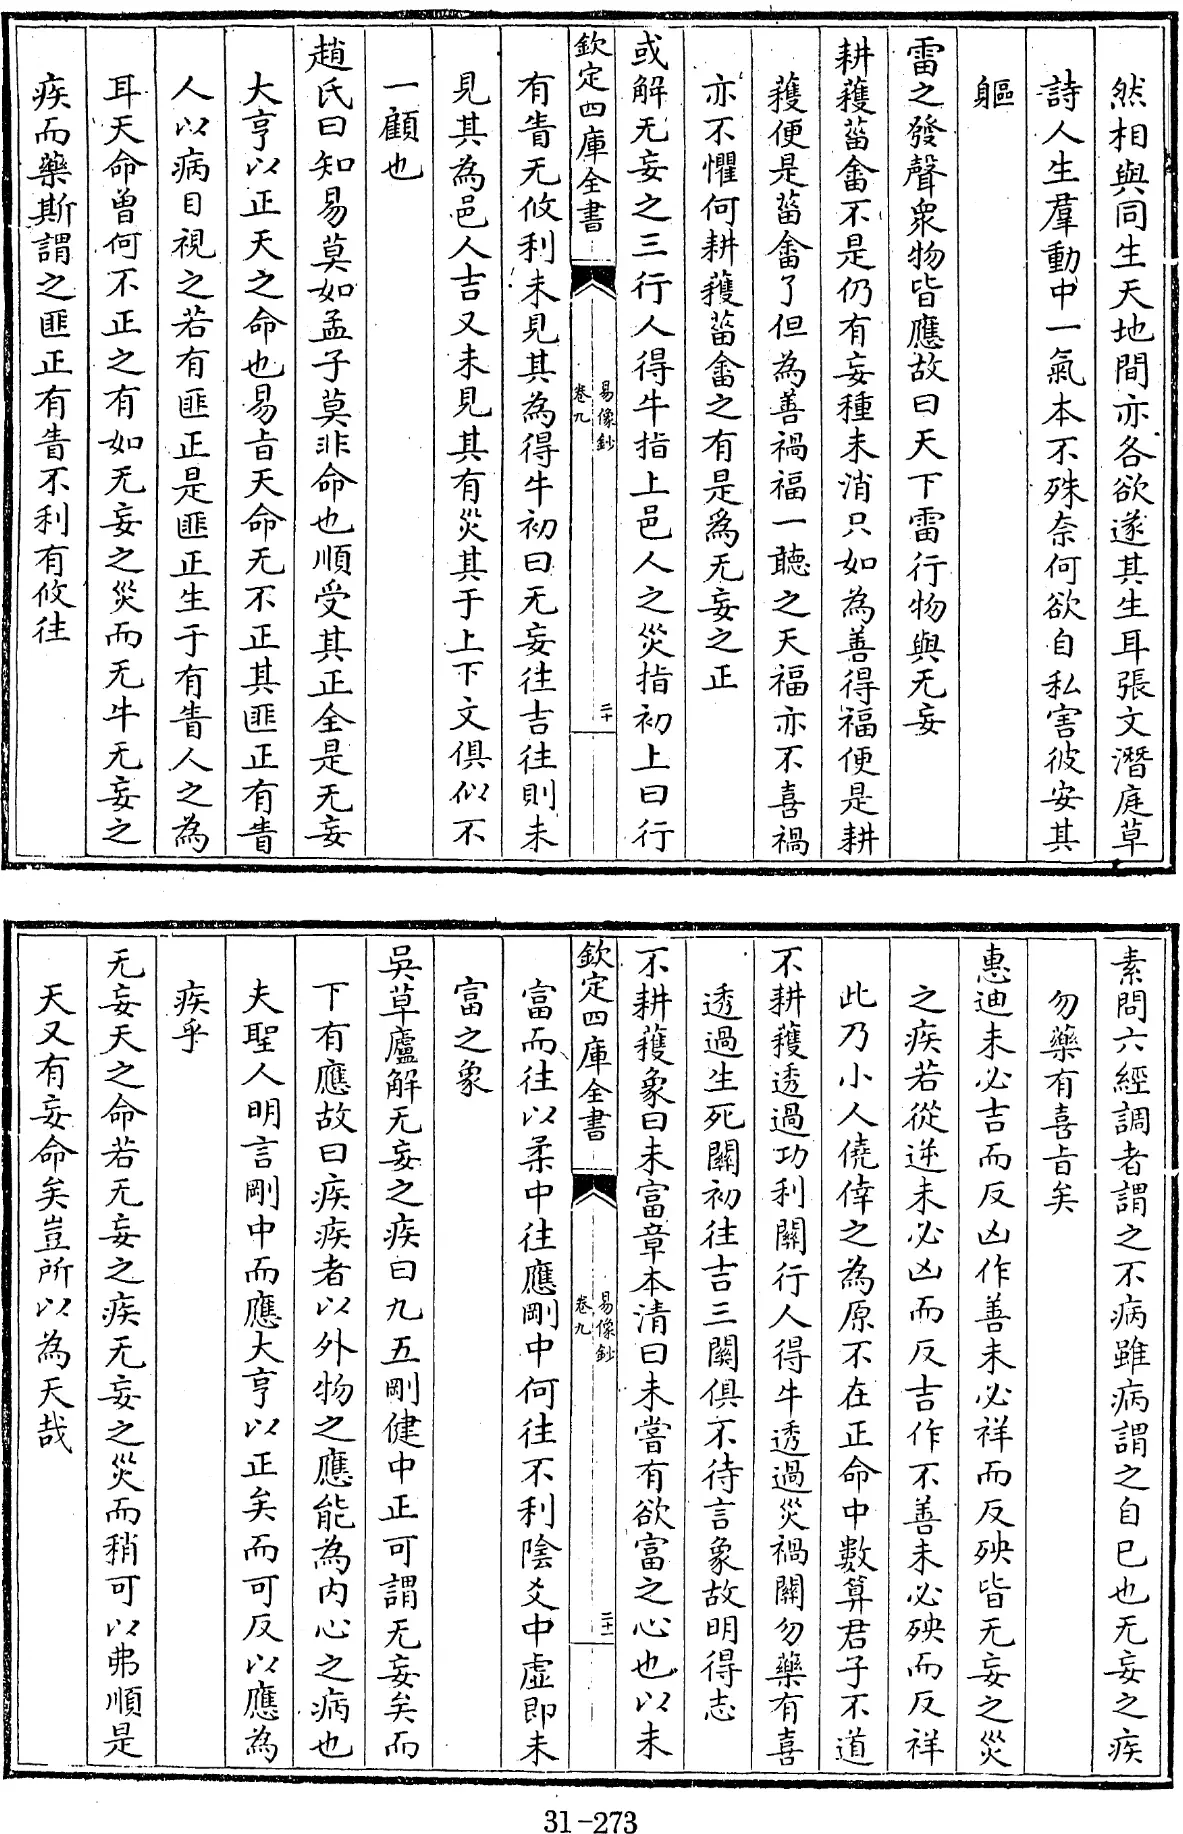 然相與同生天地間亦各欲遂其生耳張文潛庭草
詩人生羣動中一氣本不殊奈何欲自私害彼安其
軀
雷之發聲衆物皆應故曰天下雷行物與无妄
耕穫菑畬不是仍有妄種未消只如為善得福便是耕
穫便是菑畬了但為善禍福一聽之天福亦不喜禍
亦不懼何耕穫菑畬之有是爲无妄之正
或解无妄之三行人得牛指上邑人之災指初上曰行
欽定四庫全書
易像鈔
卷九
二十
有眚无攸利未見其為得牛初曰无妄往吉往則未
見其為邑人吉又未見其有災其于上下文俱似不
一顧也
趙氏曰知易莫如孟子莫非命也順受其正全是无妄
大亨以正天之命也易旨天命无不正其匪正有眚
人以病目視之若有匪正是匪正生于有眚人之為
耳天命曾何不正之有如无妄之災而无牛无妄之
疾而藥斯謂之匪正有眚不利有攸往
素問六經調者謂之不病雖病謂之自已也无妄之疾
勿藥有喜旨矣
惠迪未必吉而反凶作善未必祥而反殃皆无妄之災
之疾若從逆未必凶而反吉作不善未必殃而反祥
此乃小人僥倖之為原不在正命中數算君子不道
不耕穫透過功利關行人得牛透過災禍關勿藥有喜
透過生死關初往吉三關俱不待言象故明得志
不耕穫象曰未富章本清曰未嘗有欲富之心也以未
欽定四庫全書
易像鈔
卷九
二十一
富而往以柔中往應剛中何往不利陰爻中虛即未
富之象
吳草廬解无妄之疾曰九五剛健中正可謂无妄矣而
下有應故曰疾疾者以外物之應能為内心之病也
夫聖人明言剛中而應大亨以正矣而可反以應為
疾乎
无妄天之命若无妄之疾无妄之災而稍可以弗順是
天又有妄命矣豈所以為天哉
31-273